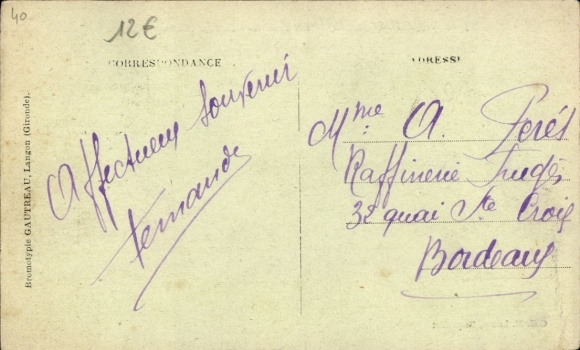 40
12€
CORRESPONDANCE
ADRESSE
Affectueux souvenir
Fernande
Mme A. Perés
Raffinerie
32 quai Ste Croix
Bordeaux
Bromotypie GAUTREAU, Langon (Gironde).